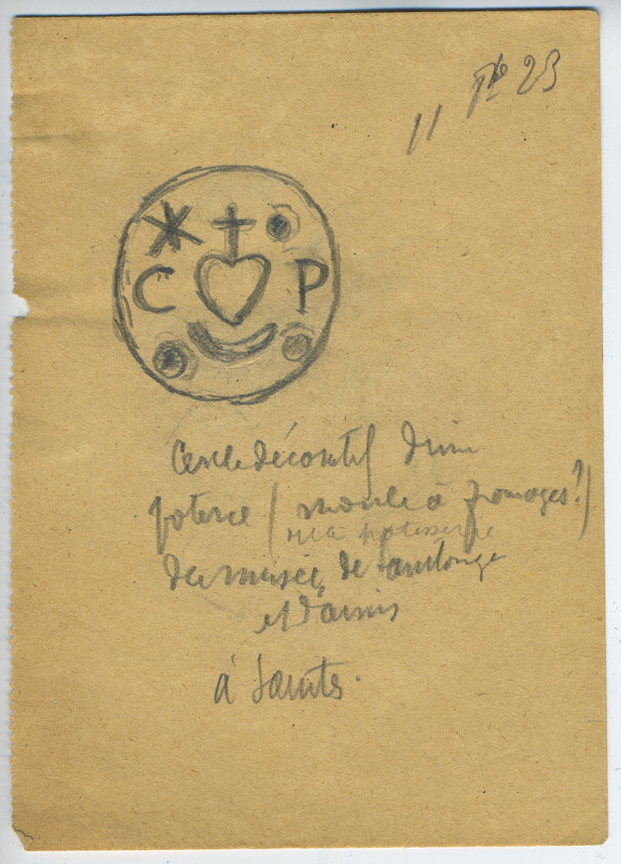 11 23
C P
Cercle décoratif d'une
poterie (moule à fromages?)
ou à patisserie
du musée de Saintonge
et d'Aunis
à Saintes.